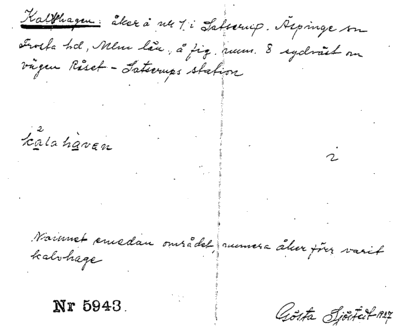 Kalvhagen: åker å nr 1 i Satserup. Äspinge sn
Frosta hd, Mlm län, å fig. num. 8 sydväst om
vägen Röset – Satserups station
kalahaven
2
Namnet emedan området, numera åker förr varit
kalvhage
Nr 5943.
Gösta Sjöstedt 1927